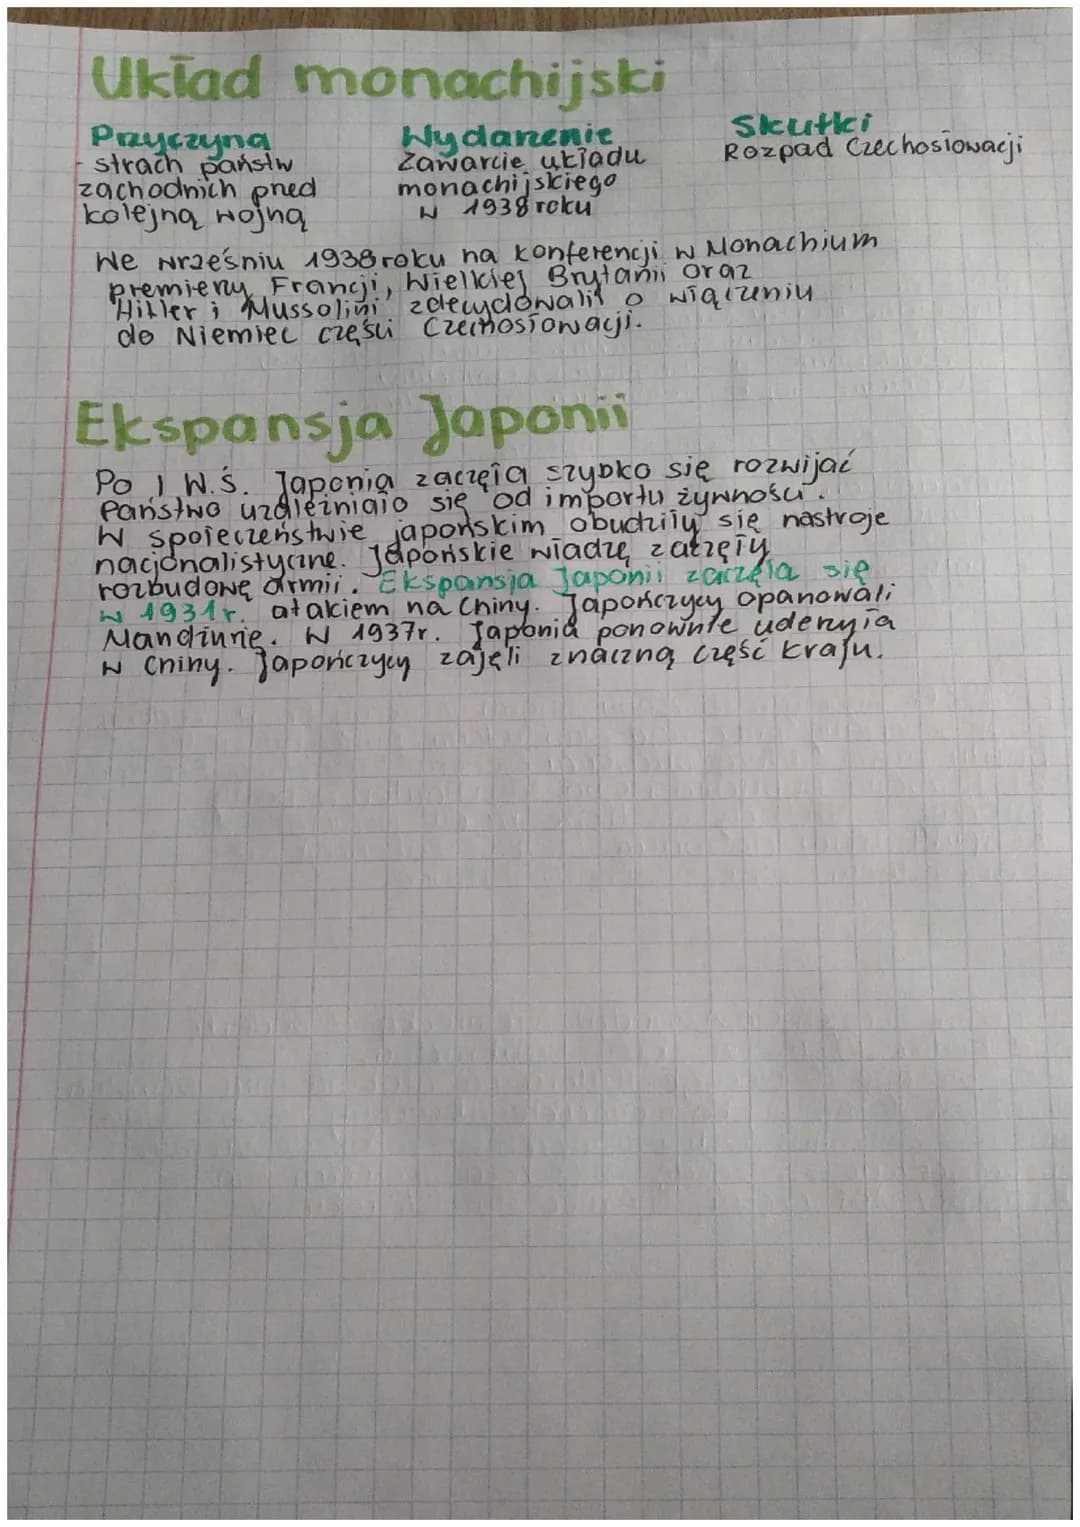 Układ monachijski
Przyczyna
- strach państw
zachodnich przed
kolejną wojną
Wydarzenie
Zawarcie układu
monachijskiego
w 1938 roku
Skutki
Rozpad Czechosłowacji
We wrześniu 1938 roku na konferencji w Monachium
premierzy Francji, Wielkiej Brytanii oraz
Hitler i Mussolini zdecydowali o włączeniu
do Niemiec części Czechosłowacji.
Ekspansja Japonii
Po I W.Ś. Japonia zaczęła szybko się rozwijać
Państwo uzależniało się od importu żywności.
W społeczeństwie japońskim obudziły się nastroje
nacjonalistyczne. Japońskie władzę zaczęły
rozbudowę armii. Ekspansja Japonii zaczęła się
w 1931r. atakiem na Chiny. Japończycy opanowali
Mandżurię. W 1937r. Japonia ponownie uderzyła
w Chiny. Japończycy zajęli znaczną część kraju.